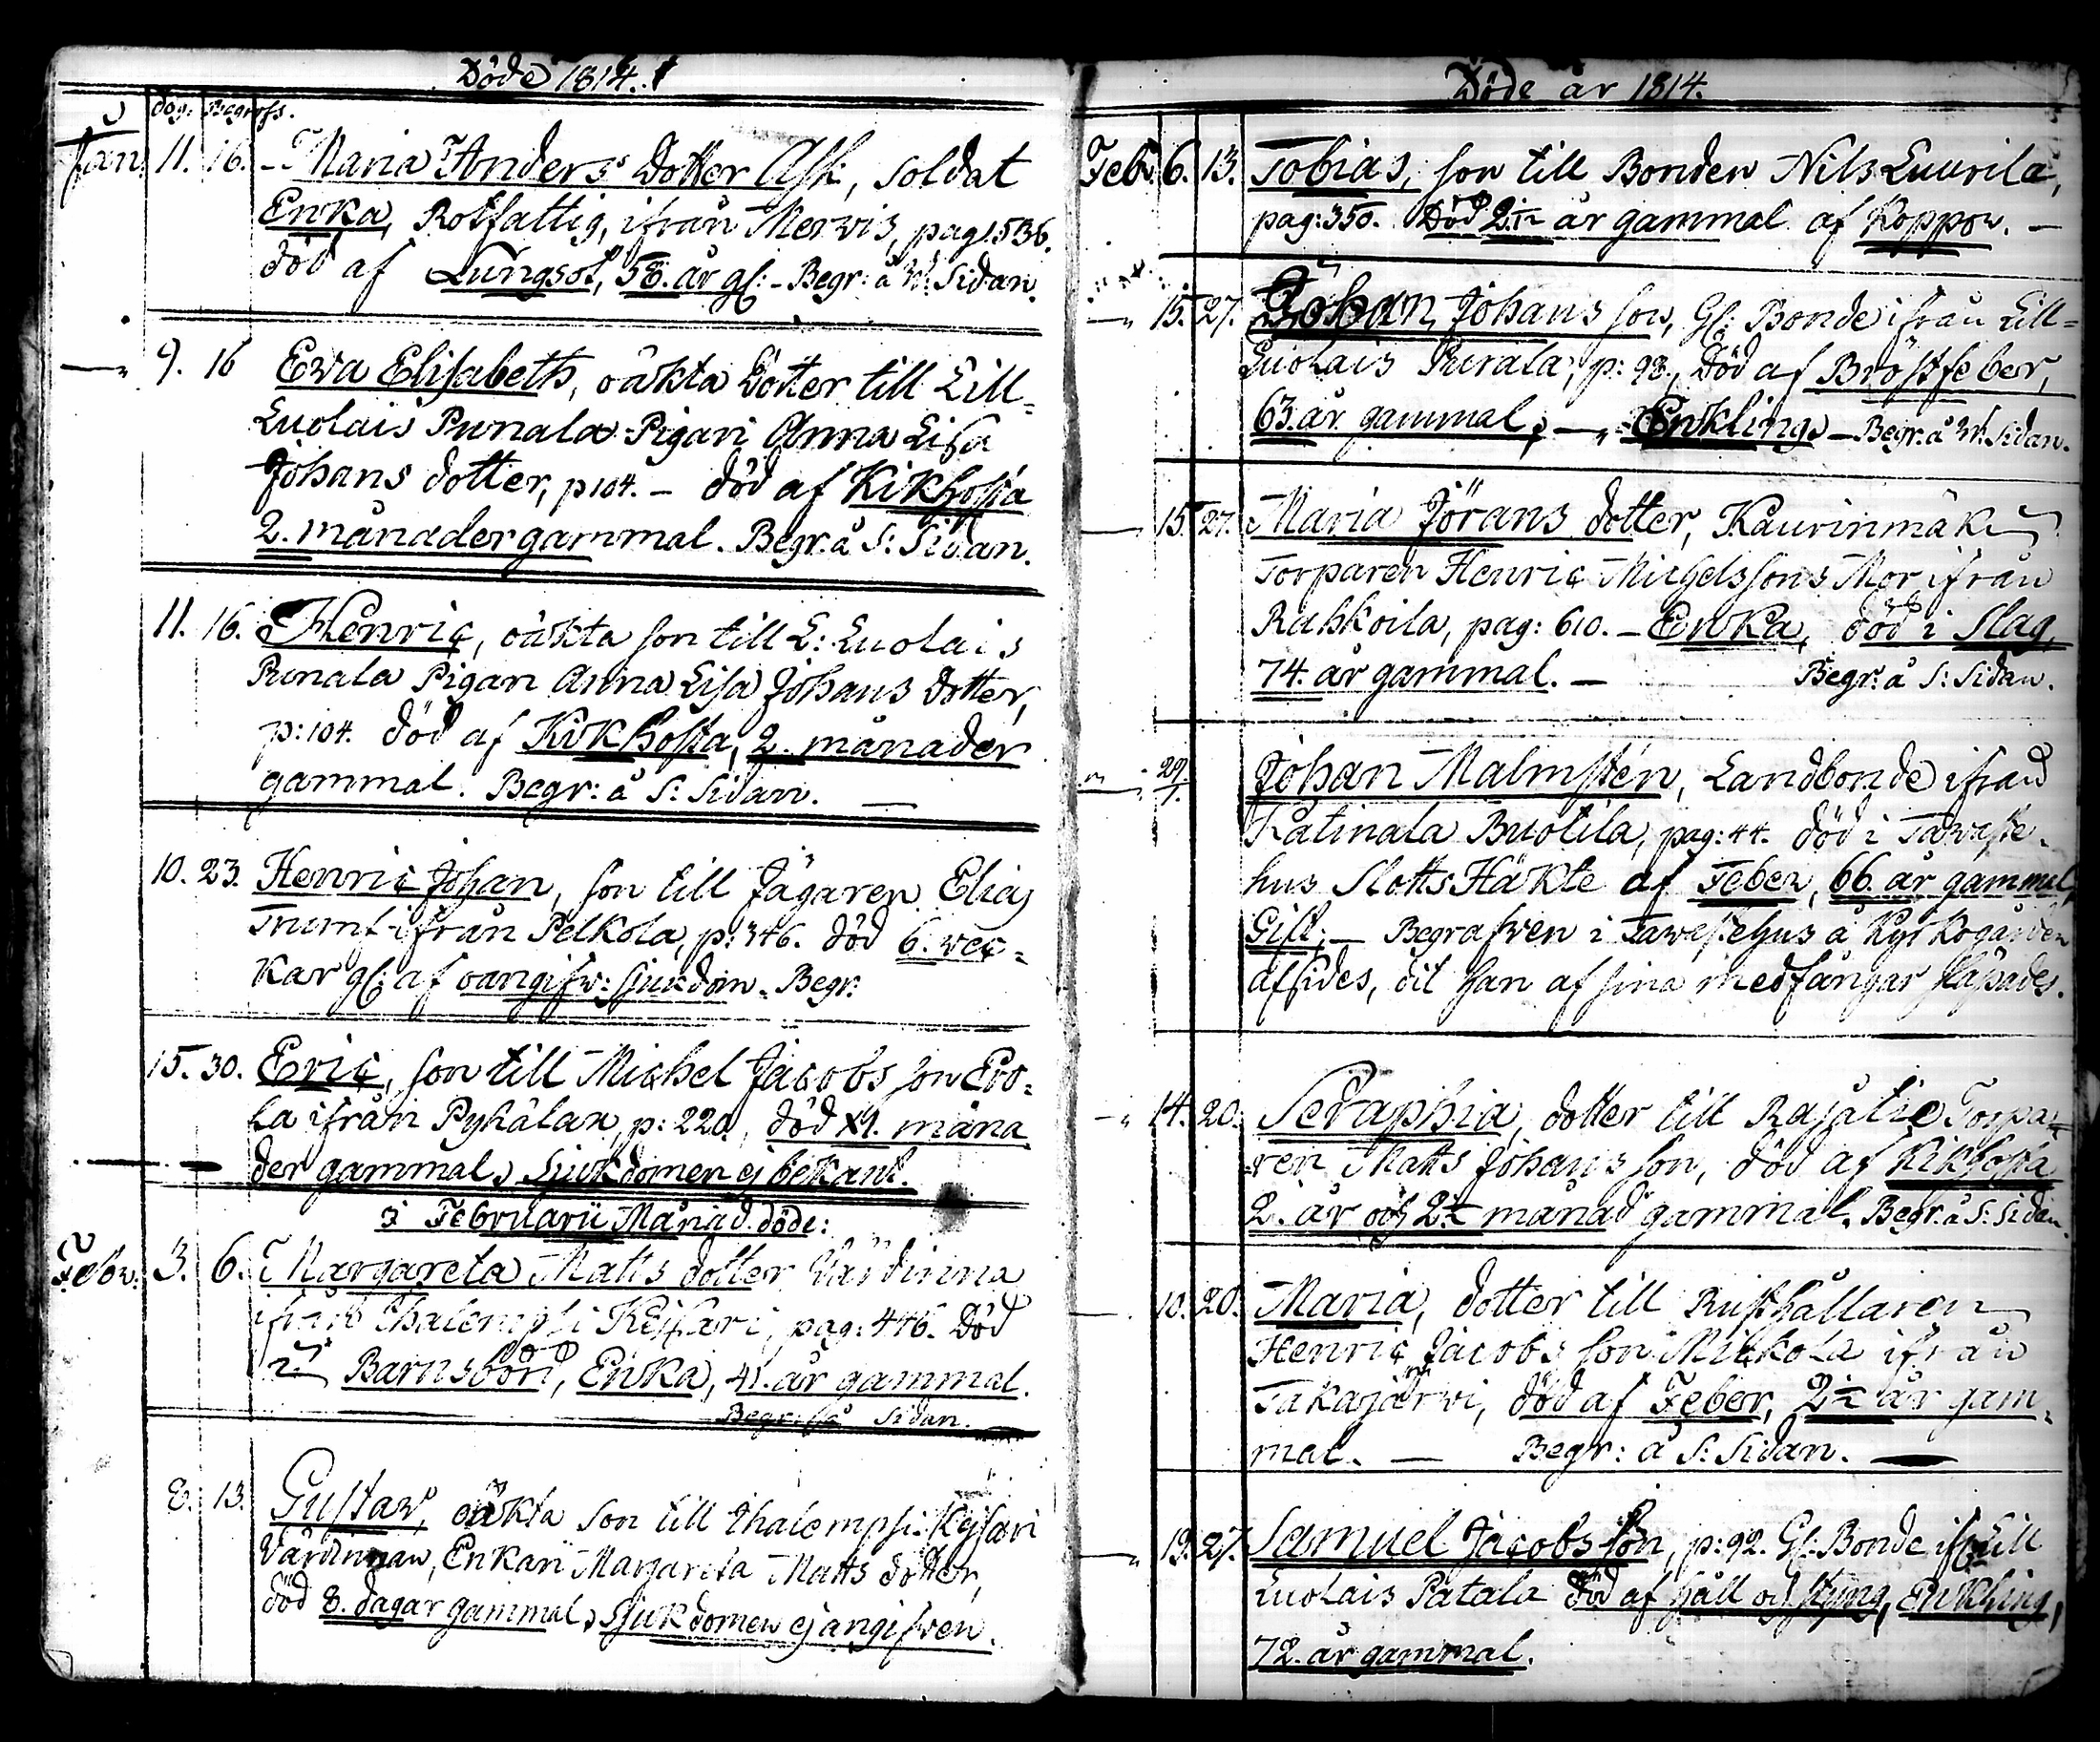 Döde 1814.
dög. Begrofs.
Jan. 11. 16. Maria Anders dotter Ask, soldat
Enka, Rotfattig, ifrån Merwis, pag. 536.
död af Lungsot, 58. år gl: - Begr: å N: Sidan.
9. 16 Ewa Elisabeth, oäkta dotter till Lill-
Luolais Punala Pigan Anna Lisa
Johans dotter, p 104. - död af Kikhosta
2. månader gammal. Begr: å S: Sidan.
11. 16. Henric, oäkta son till L: Luolais
Punala Pigan Anna Lisa Johans dotter,
p: 104. död af Kikhosta, 2. månader
gammal. Begr: å S: Sidan.
10. 23. Henric Johan, son till Jägaren Elias
Trumf ifrån Pelkola, p: 346. död 6. vec-
kar gl: af oangifw: sjukdom. Begr:
15. 30. Eric, son till Michel Jacobs son Ero-
la ifrån Pyhälax, p: 220, död 11. måna
der gammal, Sjukdomen ej bekant.
i Februarii Månad döde:
Febr. 3. 6. Margareta Matts dotter Värdinna
ifrån Ihalempi Keisari, pag: 446. död
i Barnsbörd, Enka, 41. år gammal.
Begr: å Sidan.
8. 13. Gustaw, oäkta son till Ihalempi: Keisari
Värdinnan, Enkan Margareta Matts dotter,
död 8. dagar gammal, sjukdomen ej angifwen.
Döde år 1814.
Febr. 6. 13. Tobias, son till Bonden Nils Luurila,
pag: 350. Död 2½ år gammal af Koppor. -
15. 27. Johan Johans son, Gl: Bonde ifrån Lill-
Luolais Purala, p: 98., Död af Bröstfeber,
63. år gammal, Enkling, - Begr. å N. Sidan.
15. 27. Maria Jörans dotter, Kaurinmäki
Torparen Henric Michelssons Mor ifrån
Ruhkoila, pag: 610. - Enka, död i Slag,
74. år gammal. - Begr: å S: Sidan.
29/1. Johan Malmstén, Landbonde ifrån
Katinala Buotila, pag: 44. död i Tawaste-
hus Slotts Häkte af Feber, 66. år gammal,
Gift; - Begrafven i Tawastehus å Kyrkogården
afsides, dit han af sina medfångar släpades.
14. 20. Seraphia, dotter till Rajalie Torpa-
ren Matts Johans son, död af Kikhosta
2. år och 2½ månad gammal. Begr. å S: Sidan.
10. 20. Maria, dotter till Rusthållaren
Henric Jacobs son Mickola ifrån
Takajärwi, död af Feber, 2½ år gam-
mal. - Begr: å S: Sidan. -
19. 27. Samuel Jacobs Son, p: 92. Gl: Bonde ifr: Lill
Luolais Patala död af håll och styng, Enkling,
72. år gammal.